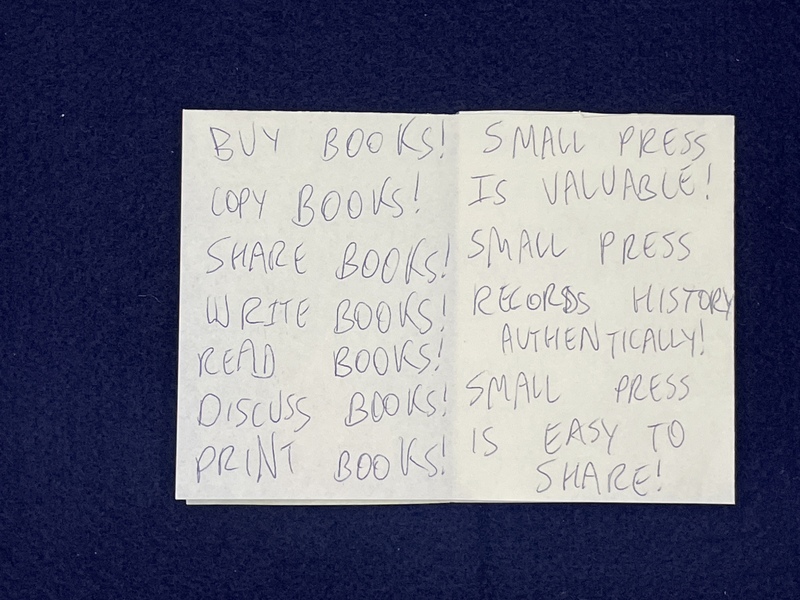 BUY BOOKS!
COPY BOOKS!
SHARE BOOKS!
WRITE BOOKS!
READ BOOKS!
DISCUSS BOOKS!
PRINT BOOKS!
SMALL PRESS
IS VALUABLE!
SMALL PRESS
RECORDS HISTORY
AUTHENTICALLY!
SMALL PRESS
IS EASY TO
SHARE!